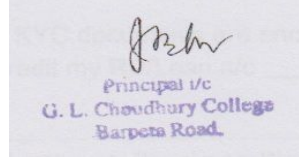 Principal i/c
G. L. Choudhury College
Barpeta Road.